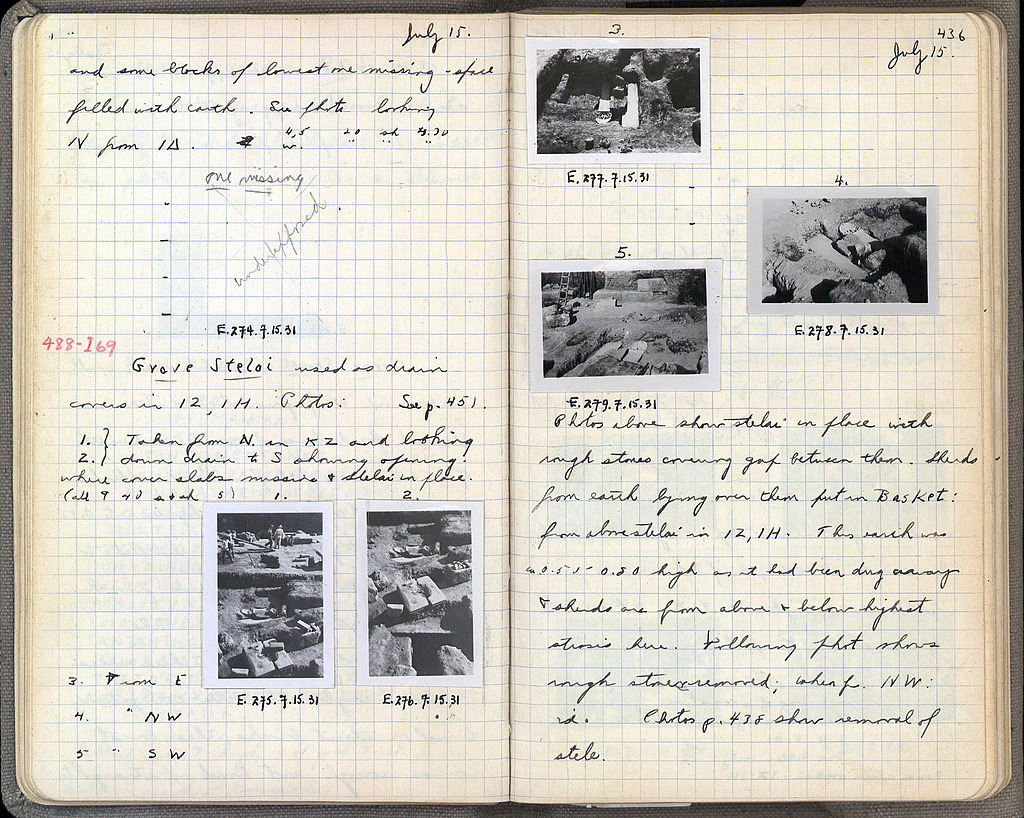 July 15.
and some blocks of lowest one missing - space
filled with earth. See photo looking
N from 1Δ.
one missing
E.274.7.15.31
488-169
Grave Stelai used as drain
covers in 12, 1H. Photos: See p. 451.
1. } Taken from N. in KZ and looking
2. } down drain to S showing opening
where cover slabs missing & stelai in place.
1. 2.
E. 275.7.15.31 E. 276.7.15.31
3. From E
4. " NW
5 " SW
436
July 15.
3.
E. 277.7.15.31
4.
E. 278.7.15.31
5.
E. 279.7.15.31
Photos above show stelai in place with
rough stones covering gap between them. Sherds
from earth lying over them put in Basket:
from above stelai in 12, 1H. This earth was
0.55-0.80 high as it had been dug away
& sherds are from above & below highest
strosis here. Following phot shows
rough stones removed; taken f. NW:
id. Photos p. 438 show removal of
stele.